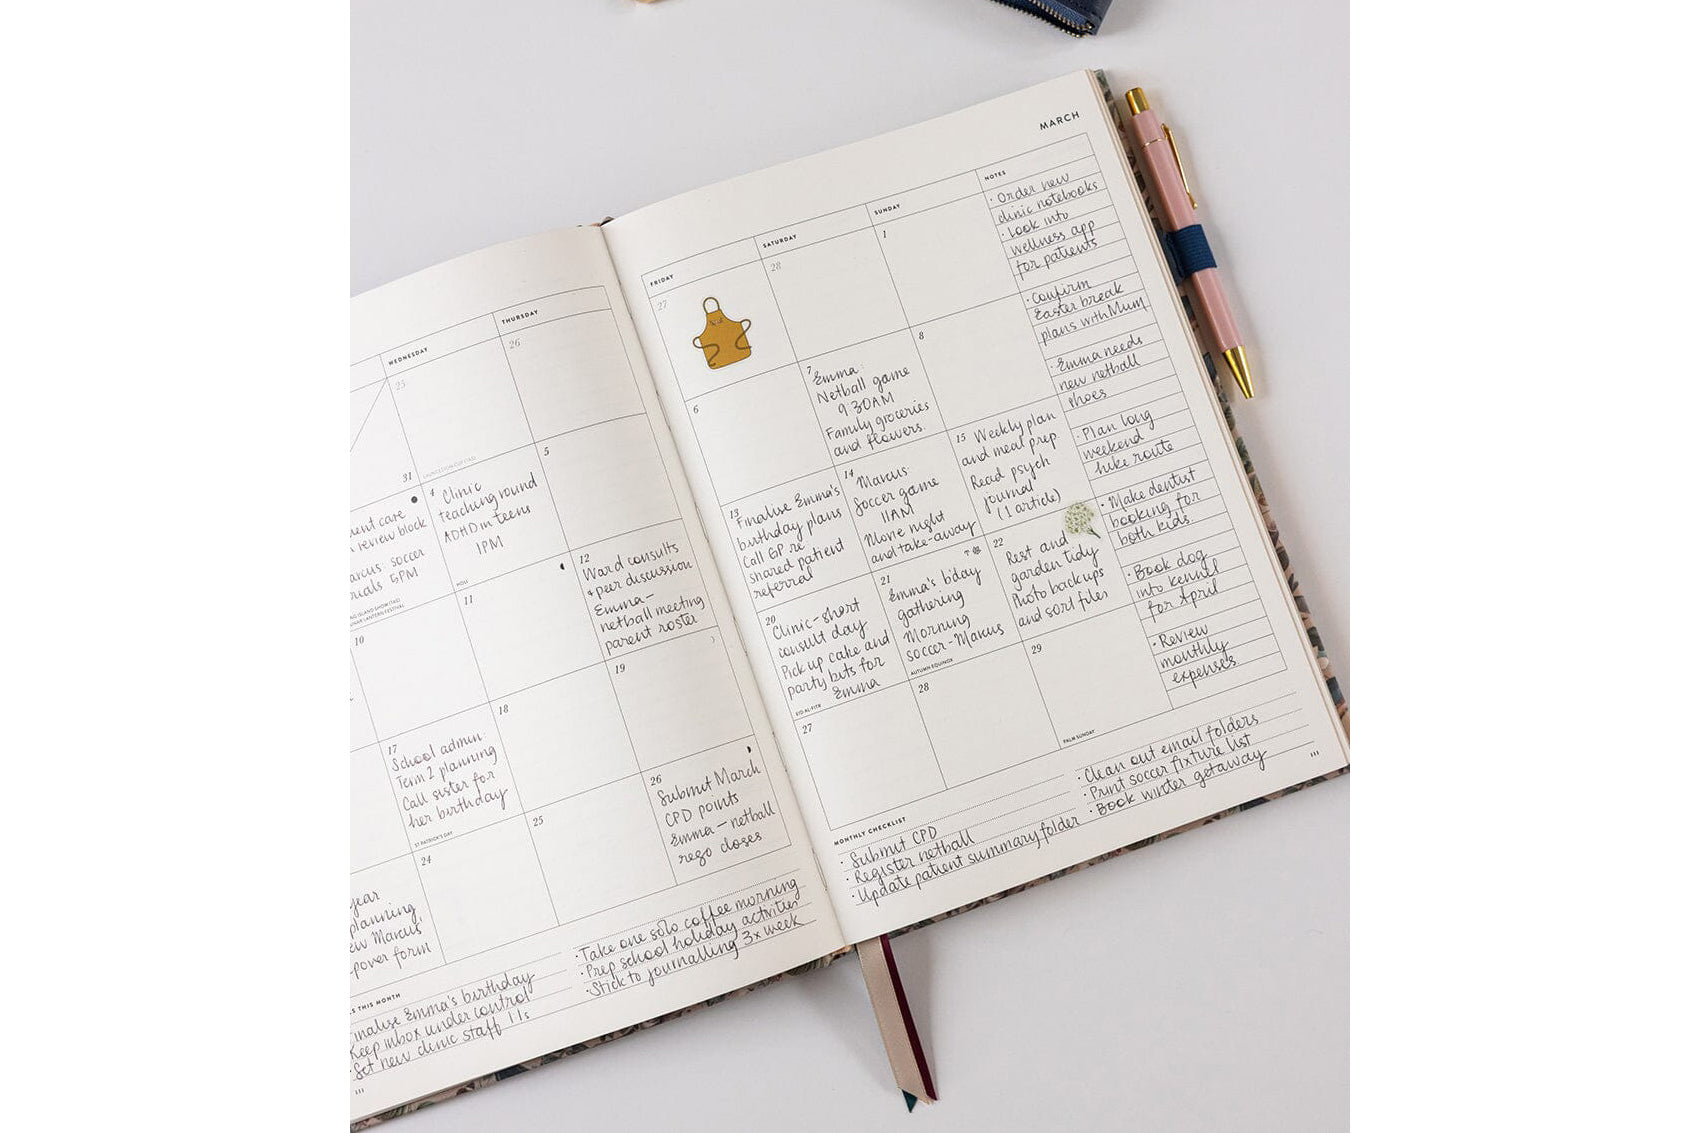 MARCH
WEDNESDAY
THURSDAY
25
26
31
4
Clinic
teaching round
ADHD in teens
1PM
5
care
review block
soccer
5PM
HOLI
LANTERN FESTIVAL
10
11
12
Ward consults
+ peer discussion
Emma –
netball meeting
parent roster
17
School admin:
Term 2 planning
Call sister for
her birthday
ST PATRICK'S DAY
18
19
year
planning,
Marcus'
form
24
25
26
Submit March
CPD points
Emma – netball
rego closes
THIS MONTH
Finalise Emma's birthday
Keep inbox under control
· Set new clinic staff 1:1s
· Take one solo coffee morning
· Prep school holiday activities
· Stick to journalling 3x week
111
FRIDAY
SATURDAY
SUNDAY
NOTES
27
28
1
6
7
Emma:
Netball game
9:30AM
Family groceries
and flowers.
8
13
Finalise Emma's
birthday plans
Call GP re
shared patient
referral
14
Marcus:
Soccer game
11AM
Movie night
and take-away
15
Weekly plan
and meal prep
Read psych
journal
(1 article)
20
Clinic – short
consult day
Pick up cake and
party bits for
Emma
EID AL-FITR
21
Emma's b'day
gathering
Morning
soccer – Marcus
AUTUMN EQUINOX
22
Rest and
garden tidy
Photo backups
and sort files
27
28
29
PALM SUNDAY
· Order new
clinic notebooks
· Look into
wellness app
for patients
· Confirm
Easter break
plans with Mum
· Emma needs
new netball
shoes
· Plan long
weekend
hike route
· Make dentist
booking for
both kids.
· Book dog
into kennel
for April
· Review
monthly
expenses
MONTHLY CHECKLIST
· Submit CPD
· Register netball
· Update patient summary folder
· Clean out email folders
· Print soccer fixture list
· Book winter getaway
111